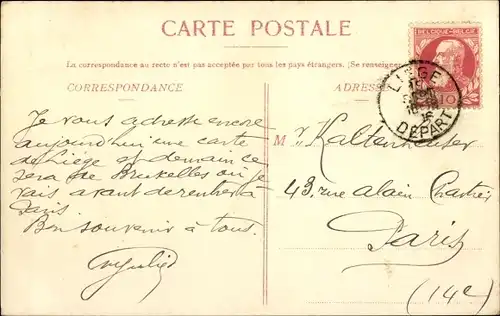 CARTE POSTALE
La correspondance au recto n'est pas acceptée par tous les pays étrangers. (Se renseigner
CORRESPONDANCE
ADRESSE
BELGIQUE-BELGIE
10
LIEGE
DEPART
Je vous adresse encore
aujourd'hui une carte
de Liege et demain ce
sera de Bruxelles où je
vais avant de rentrer à
Paris
Bon souvenir à tous.
M r. Kaltenheuser
43, rue Alain Chartier
Paris
(14e)